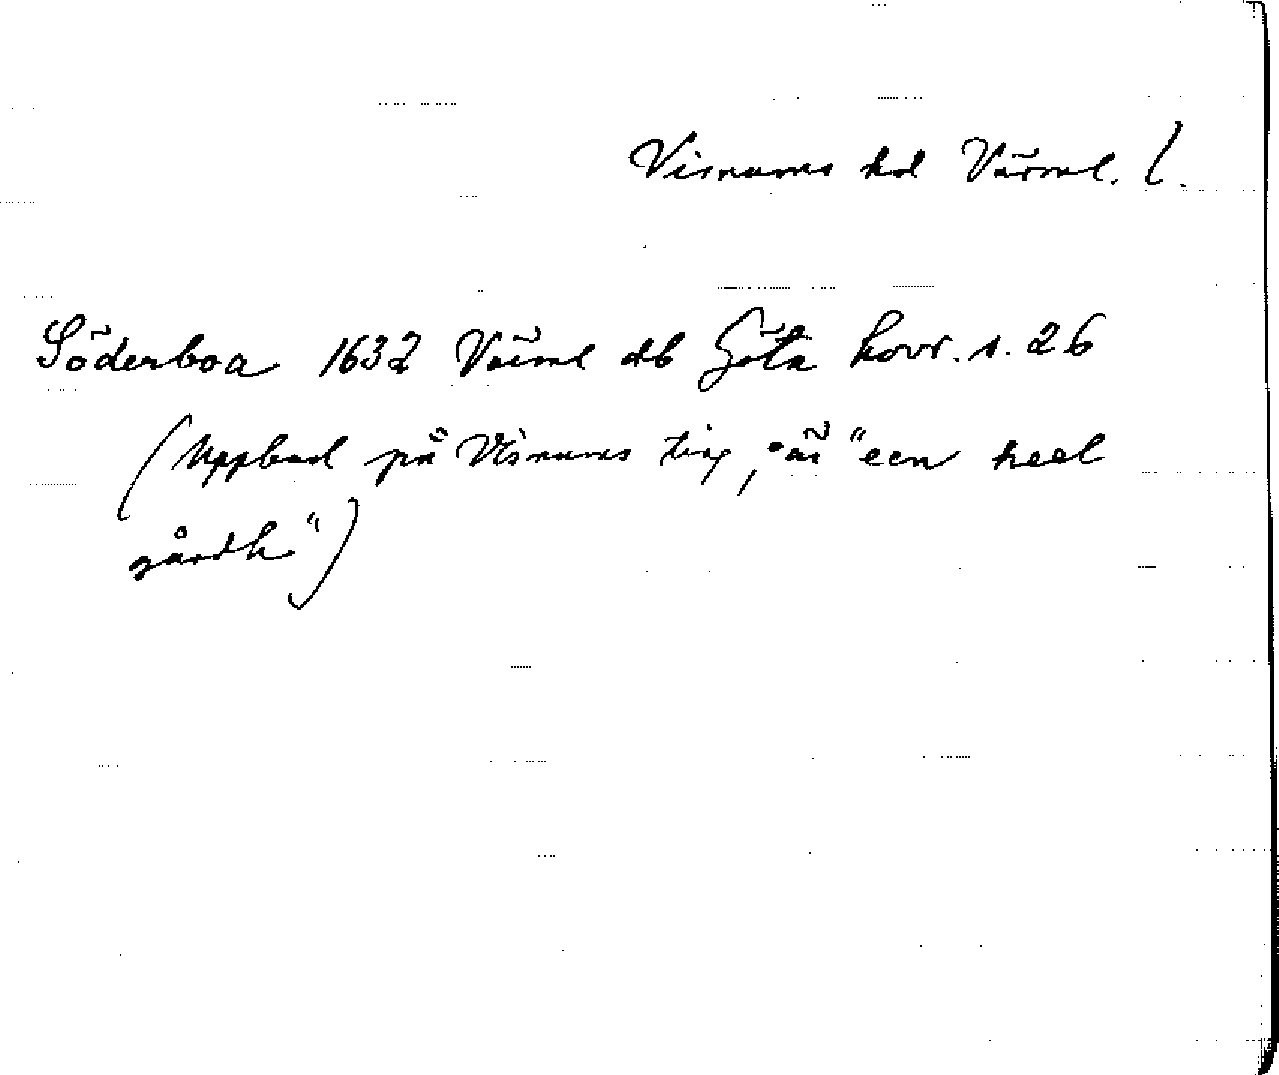 Visnums hd Värml. l.
Söderboa 1632 Värml db Göta hovr. s. 26
(Uppbud på Visnums ting, på "een heel
gårdh")